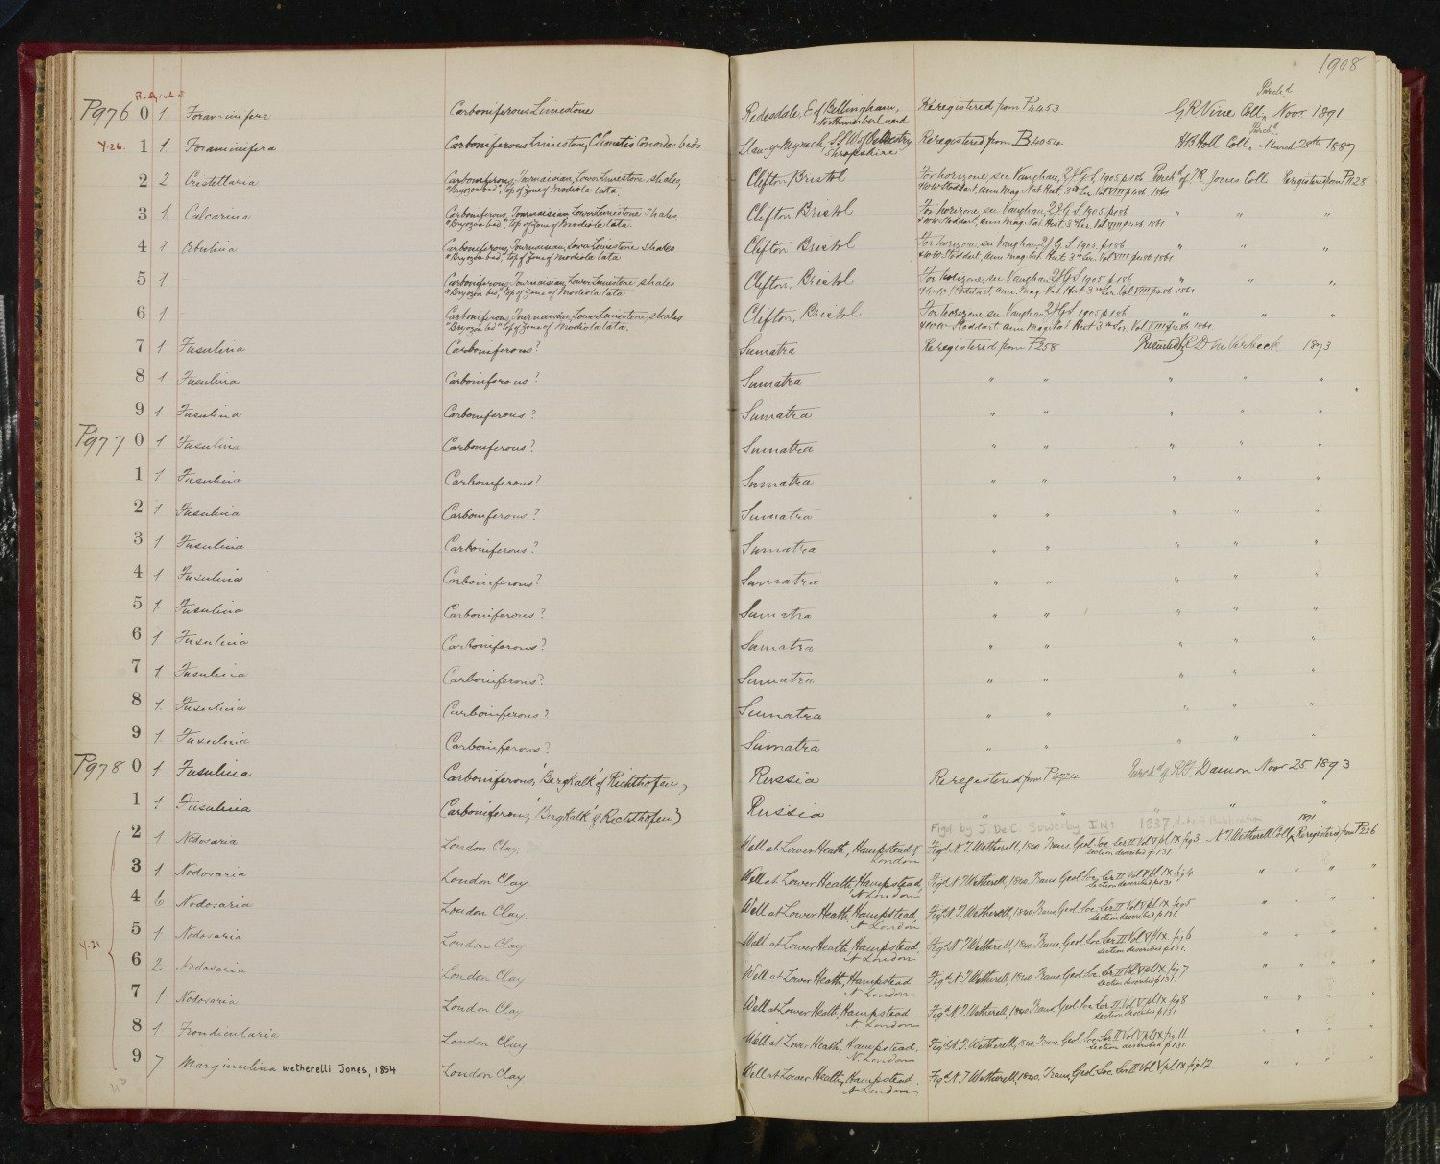 1908
P976 0 1 Foraminifera Carboniferous Limestone Redesdale, E of Bellingham, Northumberland Reregistered from P4453 G R Vine Coll. Purchd Nov. 1891
Y.26. 1 1 Foraminifera Carboniferous Limestone, Llan-y-Mynech, S.S.W. of Oswestry Shropshire Reregistered from B4054 H B Holl Coll. Purchd March 20th 1887
2 2 Cristellaria Carboniferous, Tournaisian, Lower Limestone shales, "Bryozoa bed", top of zone of Modiola lata. Clifton, Bristol For horizon, see Vaughan, Q.J.G.S. 1905 p186 & W.W. Stoddart, Ann. Mag. Nat. Hist. 3rd Ser. Vol VIII p486 1861 Purchd of T R Jones Coll Reregistered from P1128
3 1 Calcarina Carboniferous, Tournaisian, Lower Limestone shales "Bryozoa bed", top of zone of Modiola lata. Clifton, Bristol For horizon, see Vaughan, Q.J.G.S. 1905 p186 & W.W. Stoddart, Ann. Mag. Nat. Hist. 3rd Ser. Vol VIII p486 1861 " " "
4 1 Orbulina Carboniferous, Tournaisian, Lower Limestone shales "Bryozoa bed", top of zone of Modiola lata Clifton, Bristol For horizon, see Vaughan, Q.J.G.S. 1905 p186 & W.W. Stoddart, Ann. Mag. Nat. Hist. 3rd Ser. Vol VIII p486 1861 " " "
5 1 Carboniferous, Tournaisian, Lower Limestone shales "Bryozoa bed", top of zone of Modiola lata Clifton, Bristol For horizon, see Vaughan, Q.J.G.S. 1905 p186 & W.W. Stoddart, Ann. Mag. Nat. Hist. 3rd Ser. Vol VIII p486 1861 " " "
6 1 Carboniferous, Tournaisian, Lower Limestone, shales "Bryozoa bed" top of zone of Modiola lata. Clifton, Bristol. For horizon see Vaughan, Q.J.G.S. 1905 p186 & W.W. Stoddart Ann. Mag. Nat. Hist 3rd Ser. Vol VIII p486 1861. " " "
7 1 Fusulina Carboniferous? Sumatra Reregistered from P258 Presented by R D M Verbeek 1873
8 1 Fusulina Carboniferous? Sumatra " " " " "
9 1 Fusulina Carboniferous? Sumatra " " " " "
P977 0 1 Fusulina Carboniferous? Sumatra " " " " "
1 1 Fusulina Carboniferous? Sumatra " " " " "
2 1 Fusulina Carboniferous? Sumatra " " " " "
3 1 Fusulina Carboniferous? Sumatra " " " " "
4 1 Fusulina Carboniferous? Sumatra " " " " "
5 1 Fusulina Carboniferous? Sumatra " " " " "
6 1 Fusulina Carboniferous? Sumatra " " " " "
7 1 Fusulina Carboniferous? Sumatra " " " " "
8 1 Fusulina Carboniferous? Sumatra " " " " "
9 1 Fusulina Carboniferous? Sumatra " " " " "
P978 0 1 Fusulina Carboniferous, 'Bergkalk' of Richthofen Russia Reregistered from Purchd of R F Damon Nov 25 1893
1 1 Fusulina Carboniferous, 'Bergkalk' of Richthofen Russia " " " " "
Figd by J. De C. Sowerby IN: 1837
2 1 Nodosaria London Clay Well at Lower Heath, Hampstead, London Figd N T Wetherell, 1840. Trans. Geol. Soc. Ser II Vol V pl IX fig 3 section described p 131 N T Wetherell Coll. 1871 Reregistered from P236
3 1 Nodosaria London Clay Well at Lower Heath, Hampstead, N London Figd N T Wetherell, 1840. Trans Geol Soc. Ser II Vol V pl IX fig 4 section described p 131 " " " "
4 6 Nodosaria London Clay Well at Lower Heath, Hampstead, N London Figd N. T. Wetherell, 1840. Trans. Geol. Soc. Ser II Vol V pl IX fig 5 section described p 131. " " " "
Y.21
5 1 Nodosaria London Clay Well at Lower Heath, Hampstead N London Figd N. T. Wetherell, 1840 Trans. Geol. Soc. Ser II Vol V pl IX fig 6 section described p 131. " " " "
6 2 Nodosaria London Clay Well at Lower Heath, Hampstead N London. Figd N. T. Wetherell, 1840 Trans. Geol. Soc. Ser II Vol V pl IX fig 7 section described p 131. " " " "
7 1 Nodosaria London Clay Well at Lower Heath, Hampstead N London Figd N. T. Wetherell, 1840 Trans. Geol. Soc. Ser II Vol V pl IX fig 8 section described p 131 " " " "
8 1 Frondicularia London Clay Well at Lower Heath, Hampstead. N. London Figd N. T. Wetherell, 1840. Trans. Geol. Soc. Ser II Vol V pl IX fig 11 section described p 131. " " " "
9 7 Marginulina wetherelli Jones, 1854 London Clay Well at Lower Heath, Hampstead. N London Figd N. T Wetherell, 1840. Trans. Geol. Soc. Ser II Vol V pl IX fig 12 " " " "